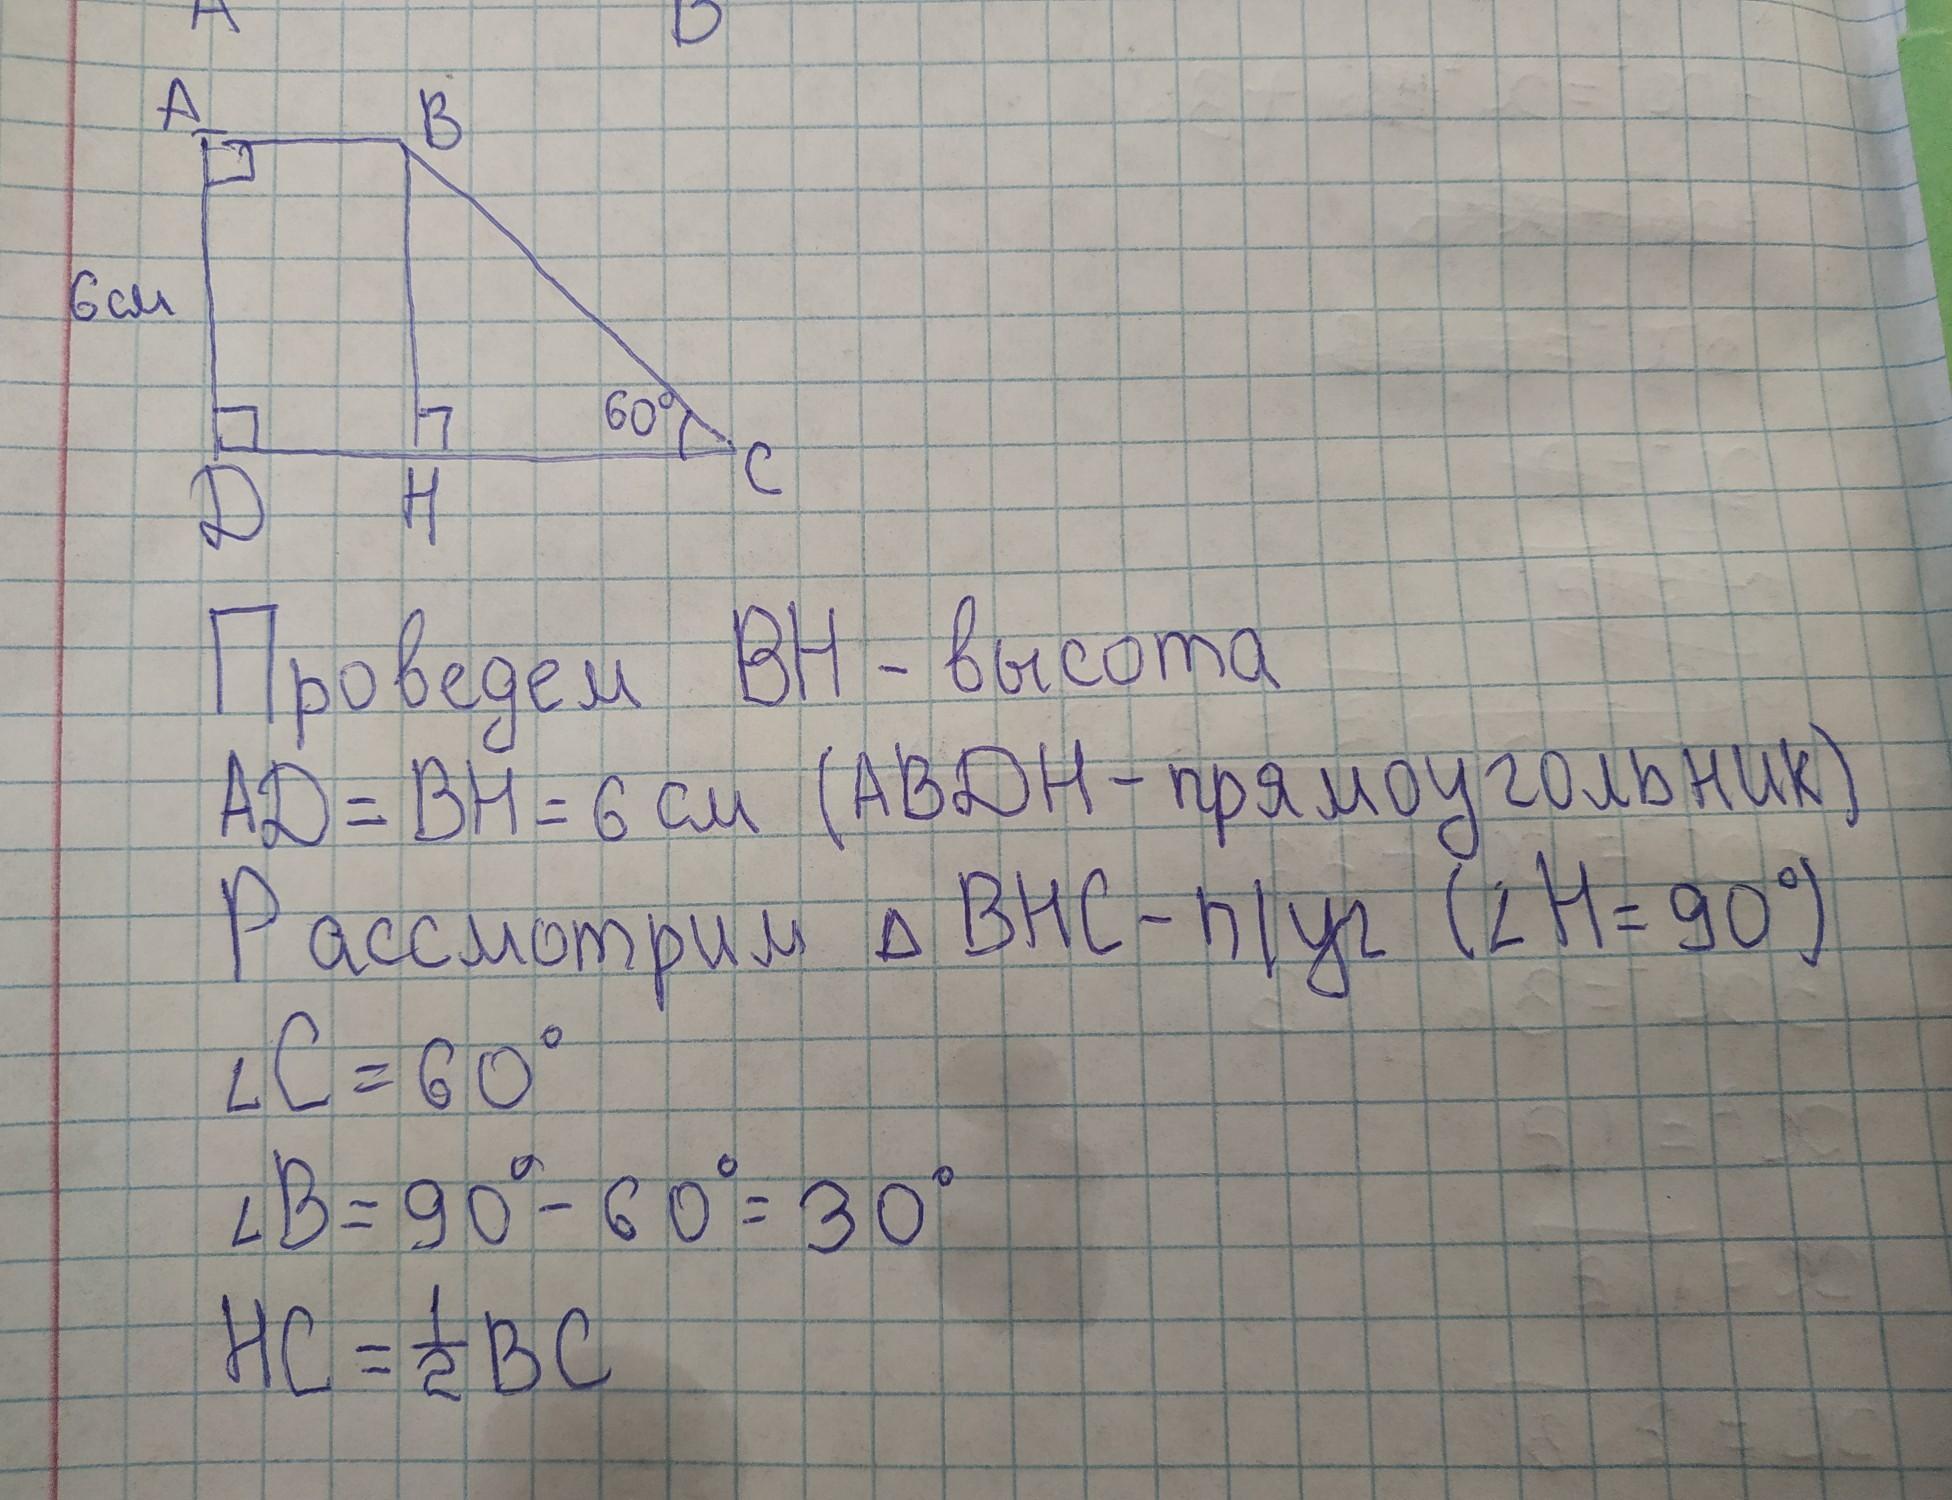 A B
A B
6 см
60°
D H C
Проведем BH - высота
AD = BH = 6 см (ABDH - прямоугольник)
Рассмотрим △ BHC - п/уг (∠H = 90°)
∠C = 60°
∠B = 90° - 60° = 30°
HC = 1/2 BC